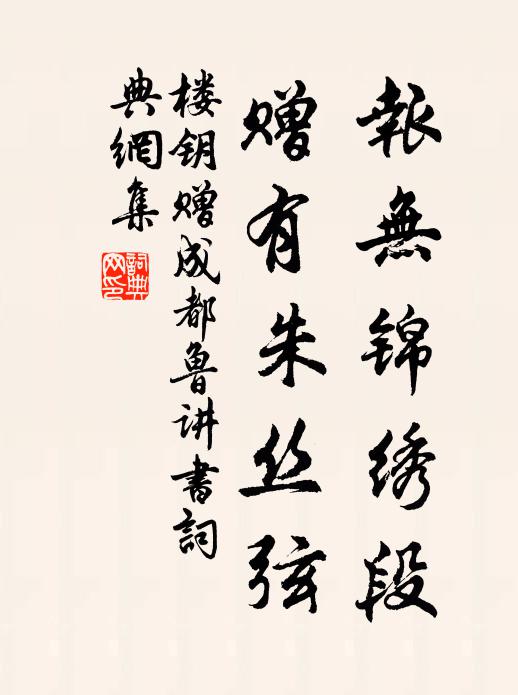 報無锦绣段
赠有朱丝弦
楼钥赠成都鲁讲書詞
典網集
詞典
网印